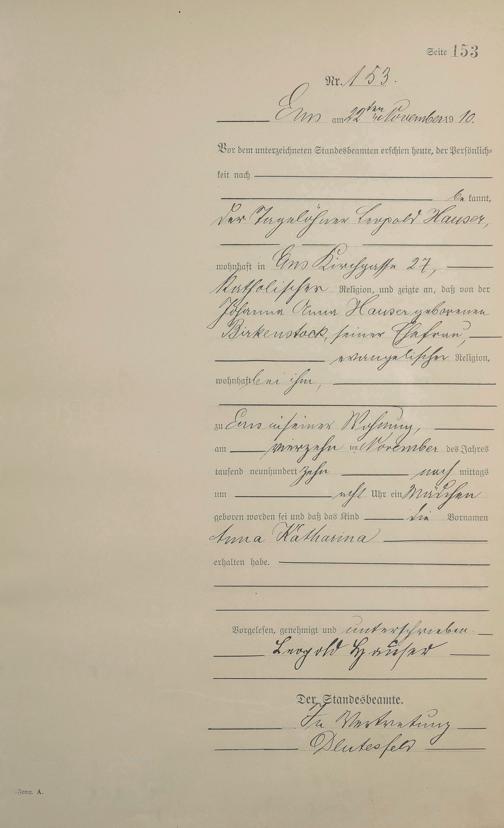 Seite 153
Nr. 153.
Ems am 22ten November 1910.
Vor dem unterzeichneten Standesbeamten erschien heute, der Persönlich-
keit nach
be kannt,
der Tagelöhner Leopold Hauser,
wohnhaft in Ems Kirchgasse 27,
katholischer Religion, und zeigte an, daß von der
Johanna Anna Hauser geborenen
Birkenstock, seiner Ehefrau,
evangelischer Religion,
wohnhaft bei ihm,
zu Ems in seiner Wohnung,
am vierzehn ten November des Jahres
tausend neunhundert zehn nach mittags
um acht Uhr ein Mädchen
geboren worden sei und daß das Kind die Vornamen
Anna Katharina
erhalten habe.
Vorgelesen, genehmigt und unterschrieben
Leopold Hauser
Der Standesbeamte.
In Vertretung
Form. A.